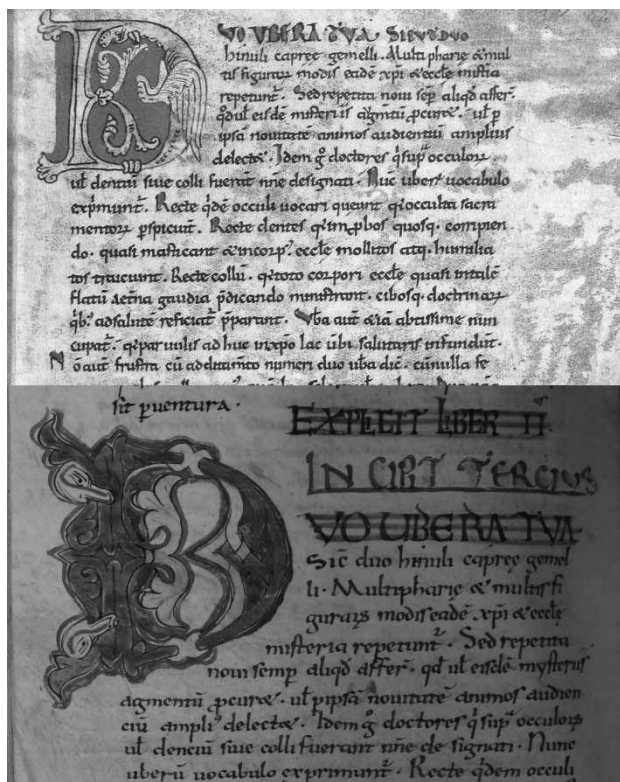 VO UBERA TVA. SICUT DUO
hinuli capreę gemelli. Multipharie & mul
tis figurarū modis eadē xp̄i & eccłe misťia
repetunť. Sed repetita noui semp̄ aliqd̄ affeř.
qd̄ ul̄ eisdē misteriis agm̄tū p̄curæ. ul̄ p
ipsā nouitatē animos audientiū amplius
delectæ. Idem g° doctores q̓ sup̄ occulorꝝ
ul̄ dentiū siue colli fuerant n̄ne designati. Nūc uberū uocabulo
exp̄munť. Recte q̓dē occuli uocari queunt q̓ occulta sacra
mentorꝝ p̄spiciunť. Recte dentes q̓ improbos quosq. compien
do. quasi masticant & incorp̓. eccłe mollitos atq. humilia
tos traiciunt. Recte collū. q̓ toto corpori eccłe quasi uitalē
flatū aetna gaudia p̄dicando ministrant. cibosq. doctrinarꝝ
q̓b. ad salutē reficiať p̄parant. Vb̄a auť &iā abtissime nun
cupať. q̓ paruulis adhuc in xp̄o lac ubi salutaris infundunť.
Nō auť frustra cū additam̄to numeri duo ub̄a diċ. cū nulla fe
sit p̄uentura.
EXPLICIT LIBER II.
IN CIPIT TERCIUS
VO UBERA TVA.
Sić duo hinuli capreę gemel
li. Multipharię & multis fi
gurarꝝ modis eadē xp̄i & eccłe
misteria repetunť. Sed repetita
noui semp̄ aliqd̄ affeř. qd̄ ul̄ eisdē mysteriis
agmentū p̄curæ. ul̄ p ipsā nouitatē animos audien
ciū ampli᷒ delectæ. Idem g° doctores q̓ sup̄ occulorꝝ
ul̄ denciū siue colli fuerant n̄ne designati. Nunc
uberū uocabulo exprimunť. Recte q̓dem occuli